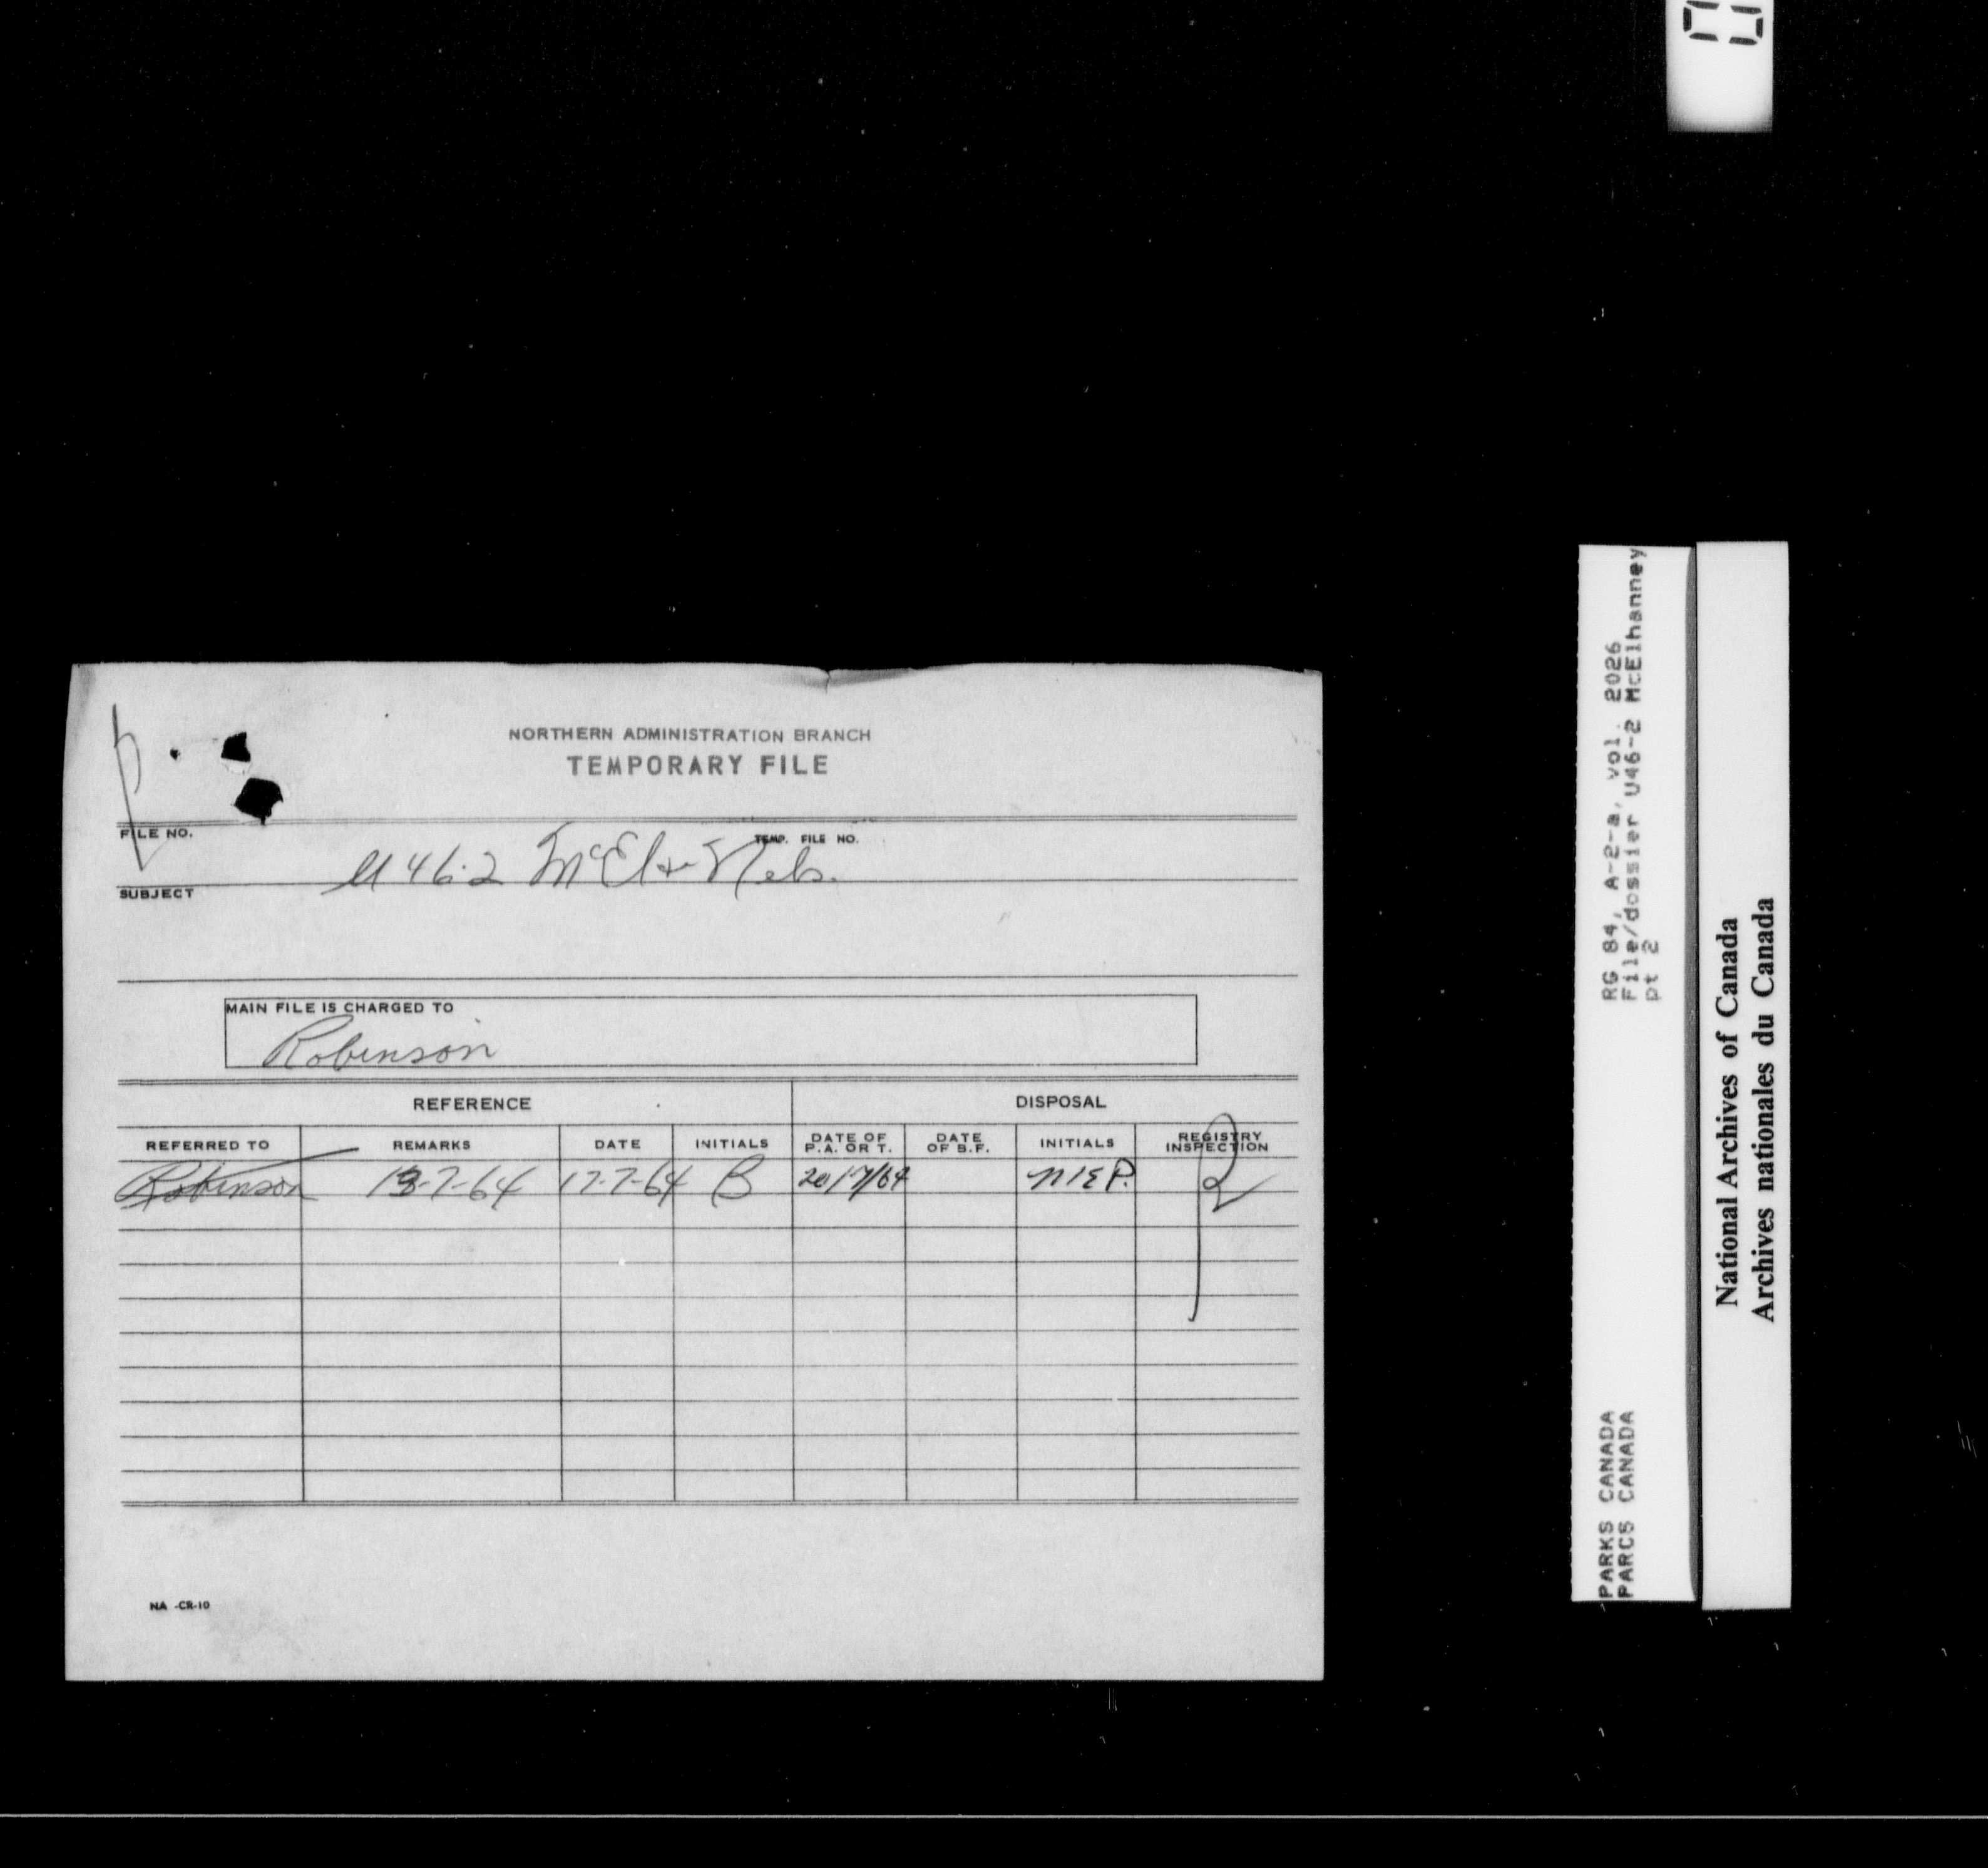 NORTHERN ADMINISTRATION BRANCH
TEMPORARY FILE
FILE NO.
TEMP. FILE NO.
U 46-2 McEl
SUBJECT
MAIN FILE IS CHARGED TO
Robinson
REFERENCE DISPOSAL
REFERRED TO REMARKS DATE INITIALS DATE OF P.A. OR T. DATE OF B.F. INITIALS REGISTRY INSPECTION
Robinson 13-7-64 17-7-64 B 20/7/64
NA -CR-10
RG 84, A-2-a, vol. 2026
File/dossier U46-2 McElhanney
pt 2
PARKS CANADA
PARCS CANADA
National Archives of Canada
Archives nationales du Canada